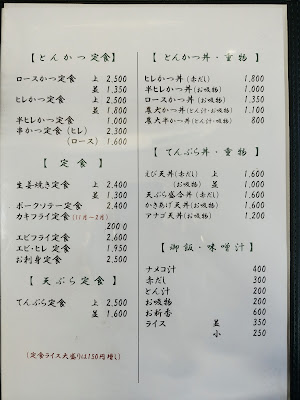 【とんかつ定食】
ロースかつ定食 上 2,500
並 1,350
ヒレかつ定食 上 2,500
並 1,800
半ヒレかつ定食 1,000
串かつ定食(ヒレ) 2,300
(ロース) 1,600
【定食】
生姜焼き定食 上 2,400
並 1,300
ポークソテー定食 2,400
カキフライ定食(11月~2月)
2000
エビフライ定食 2,600
エビ・ヒレ定食 1,950
お刺身定食 2,500
【天ぷら定食】
てんぷら定食 上 2,500
並 1,600
(定食ライス大盛りは150円増し)
【とんかつ丼・重物】
ヒレかつ丼(赤だし) 1,800
半ヒレかつ丼(お吸物) 1,000
ロースかつ丼(お吸物) 1,350
農大かつ丼(とん汁・お吸物) 1,100
農大半かつ丼(とん汁・お吸物) 800
【てんぷら丼・重物】
えび天丼(赤だし) 上 1,600
(お吸物) 並 1,000
天ぷら盛合丼(お吸物) 1,600
かきあげ天丼(お吸物) 1,600
アナゴ天丼(お吸物) 1,200
【御飯・味噌汁】
ナメコ汁 400
赤だし 300
とん汁 200
お吸物 200
お新香 200
ライス 並 350
小 250